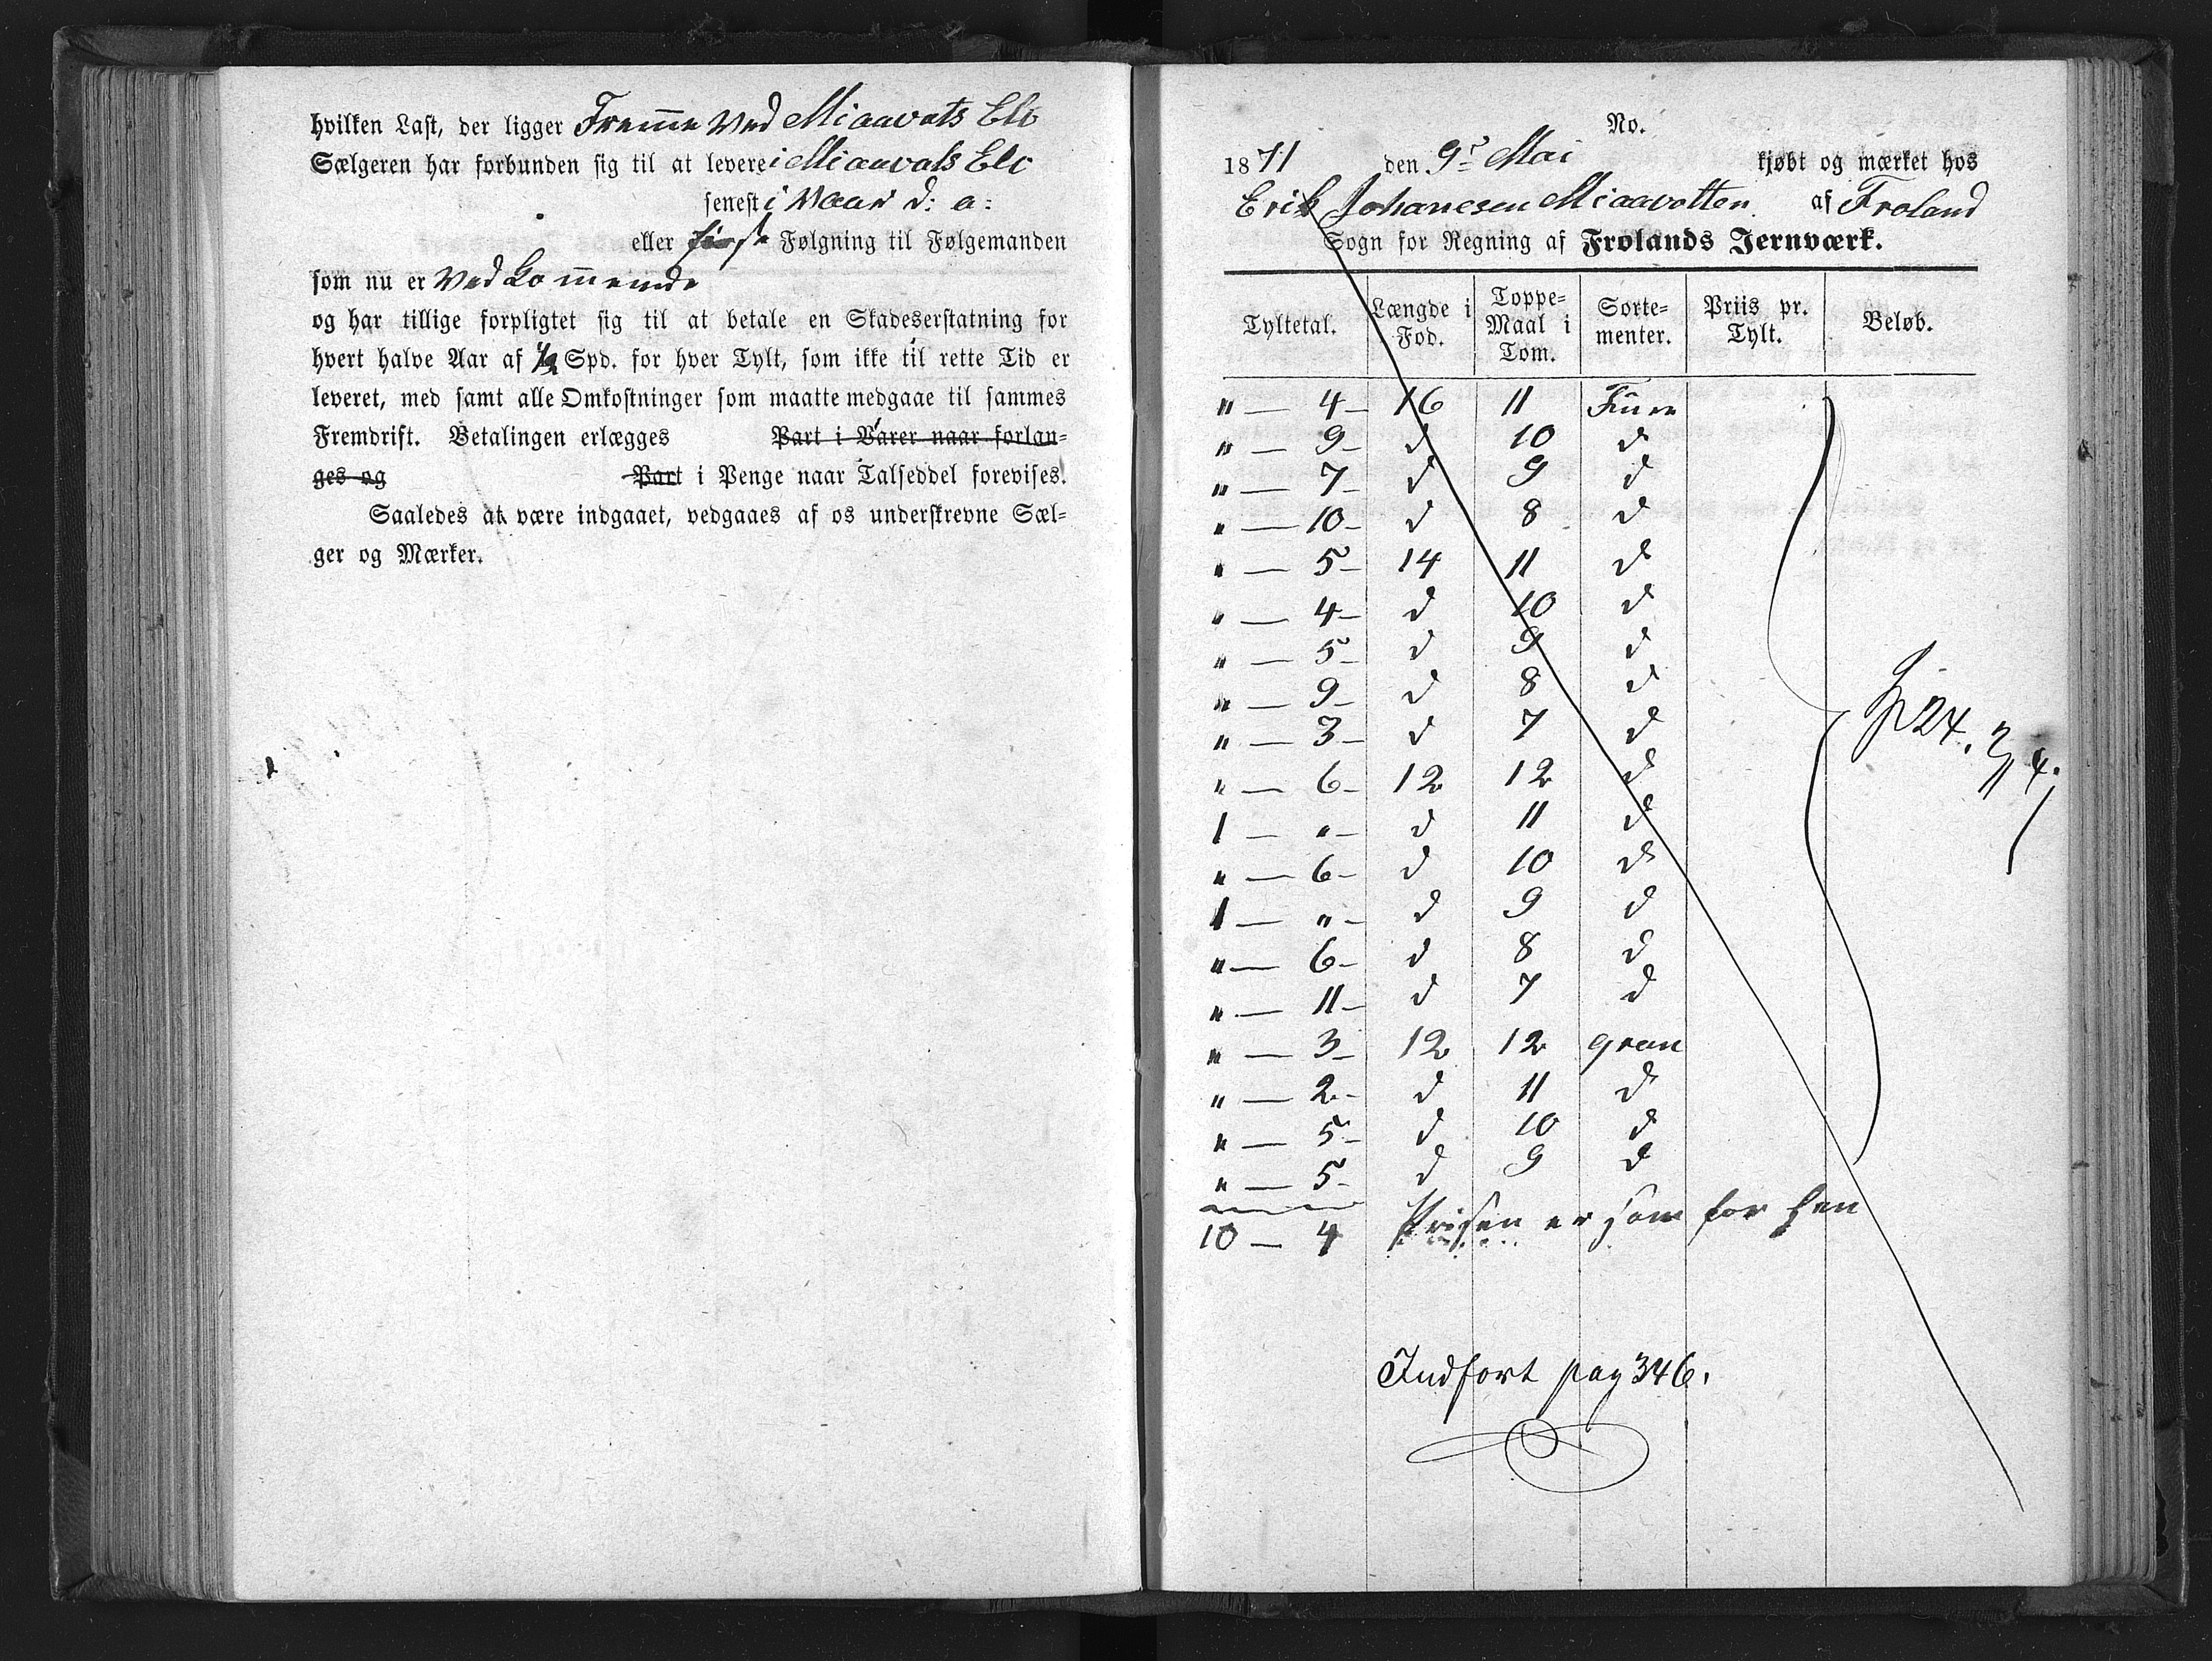 hvilken Last, der ligger Fremme ved Miaavats Elv
Sælgeren har forbunden sig til at levere i Miaavats Elv
senest i Vaar d: a:
eller første Følgning til Følgemanden
som nu er Vedkommende
og har tillige forpligtet sig til at betale en Skadeserstatning for
hvert halve Aar af 1/2 Spd. for hver Tylt, som ikke til rette Tid er
leveret, med samt alle Omkostninger som maatte medgaae til sammes
Fremdrift. Betalingen erlægges Part i Varer naar forlan-
ges og Part i Penge naar Talseddel forevises.
Saaledes at være indgaaet, vedgaaes af os underskrevne Sæl-
ger og Mærker.
No.
1871 den 9de Mai kjøbt og mærket hos
Erik Johanesen Miaavatten af Froland
Sogn for Regning af Frolands Jernværk.
Tyltetal. Længde i Fod. Toppe-Maal i Tom. Sorte-menter. Priis pr. Tylt. Beløb.
" — 4 — 16 11 Furu
" — 9 — d 10 d
" — 7 — d 9 d
" — 10 — d 8 d
" — 5 — 14 11 d
" — 4 — d 10 d
" — 5 — d 9 d
" — 9 — d 8 d
" — 3 — d 7 d
" — 6 — 12 12 d
1 — " — d 11 d
" — 6 — d 10 d
1 — " — d 9 d
" — 6 — d 8 d
" — 11 — d 7 d
" — 3 — 12 12 gran
" — 2 — d 11 d
" — 5 — d 10 d
" — 5 — d 9 d
10 — 4 Prisen er som for hen
24. 3/4.
Indført pag 346.